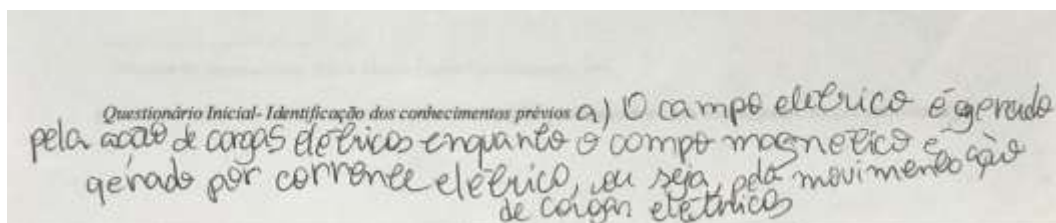 Questionário Inicial- Identificação dos conhecimentos prévios a) O campo elétrico é gerado
pela ação de cargas elétricas enquanto o campo magnético é
gerado por corrente elétrica, ou seja, pela movimentação
de cargas elétricas